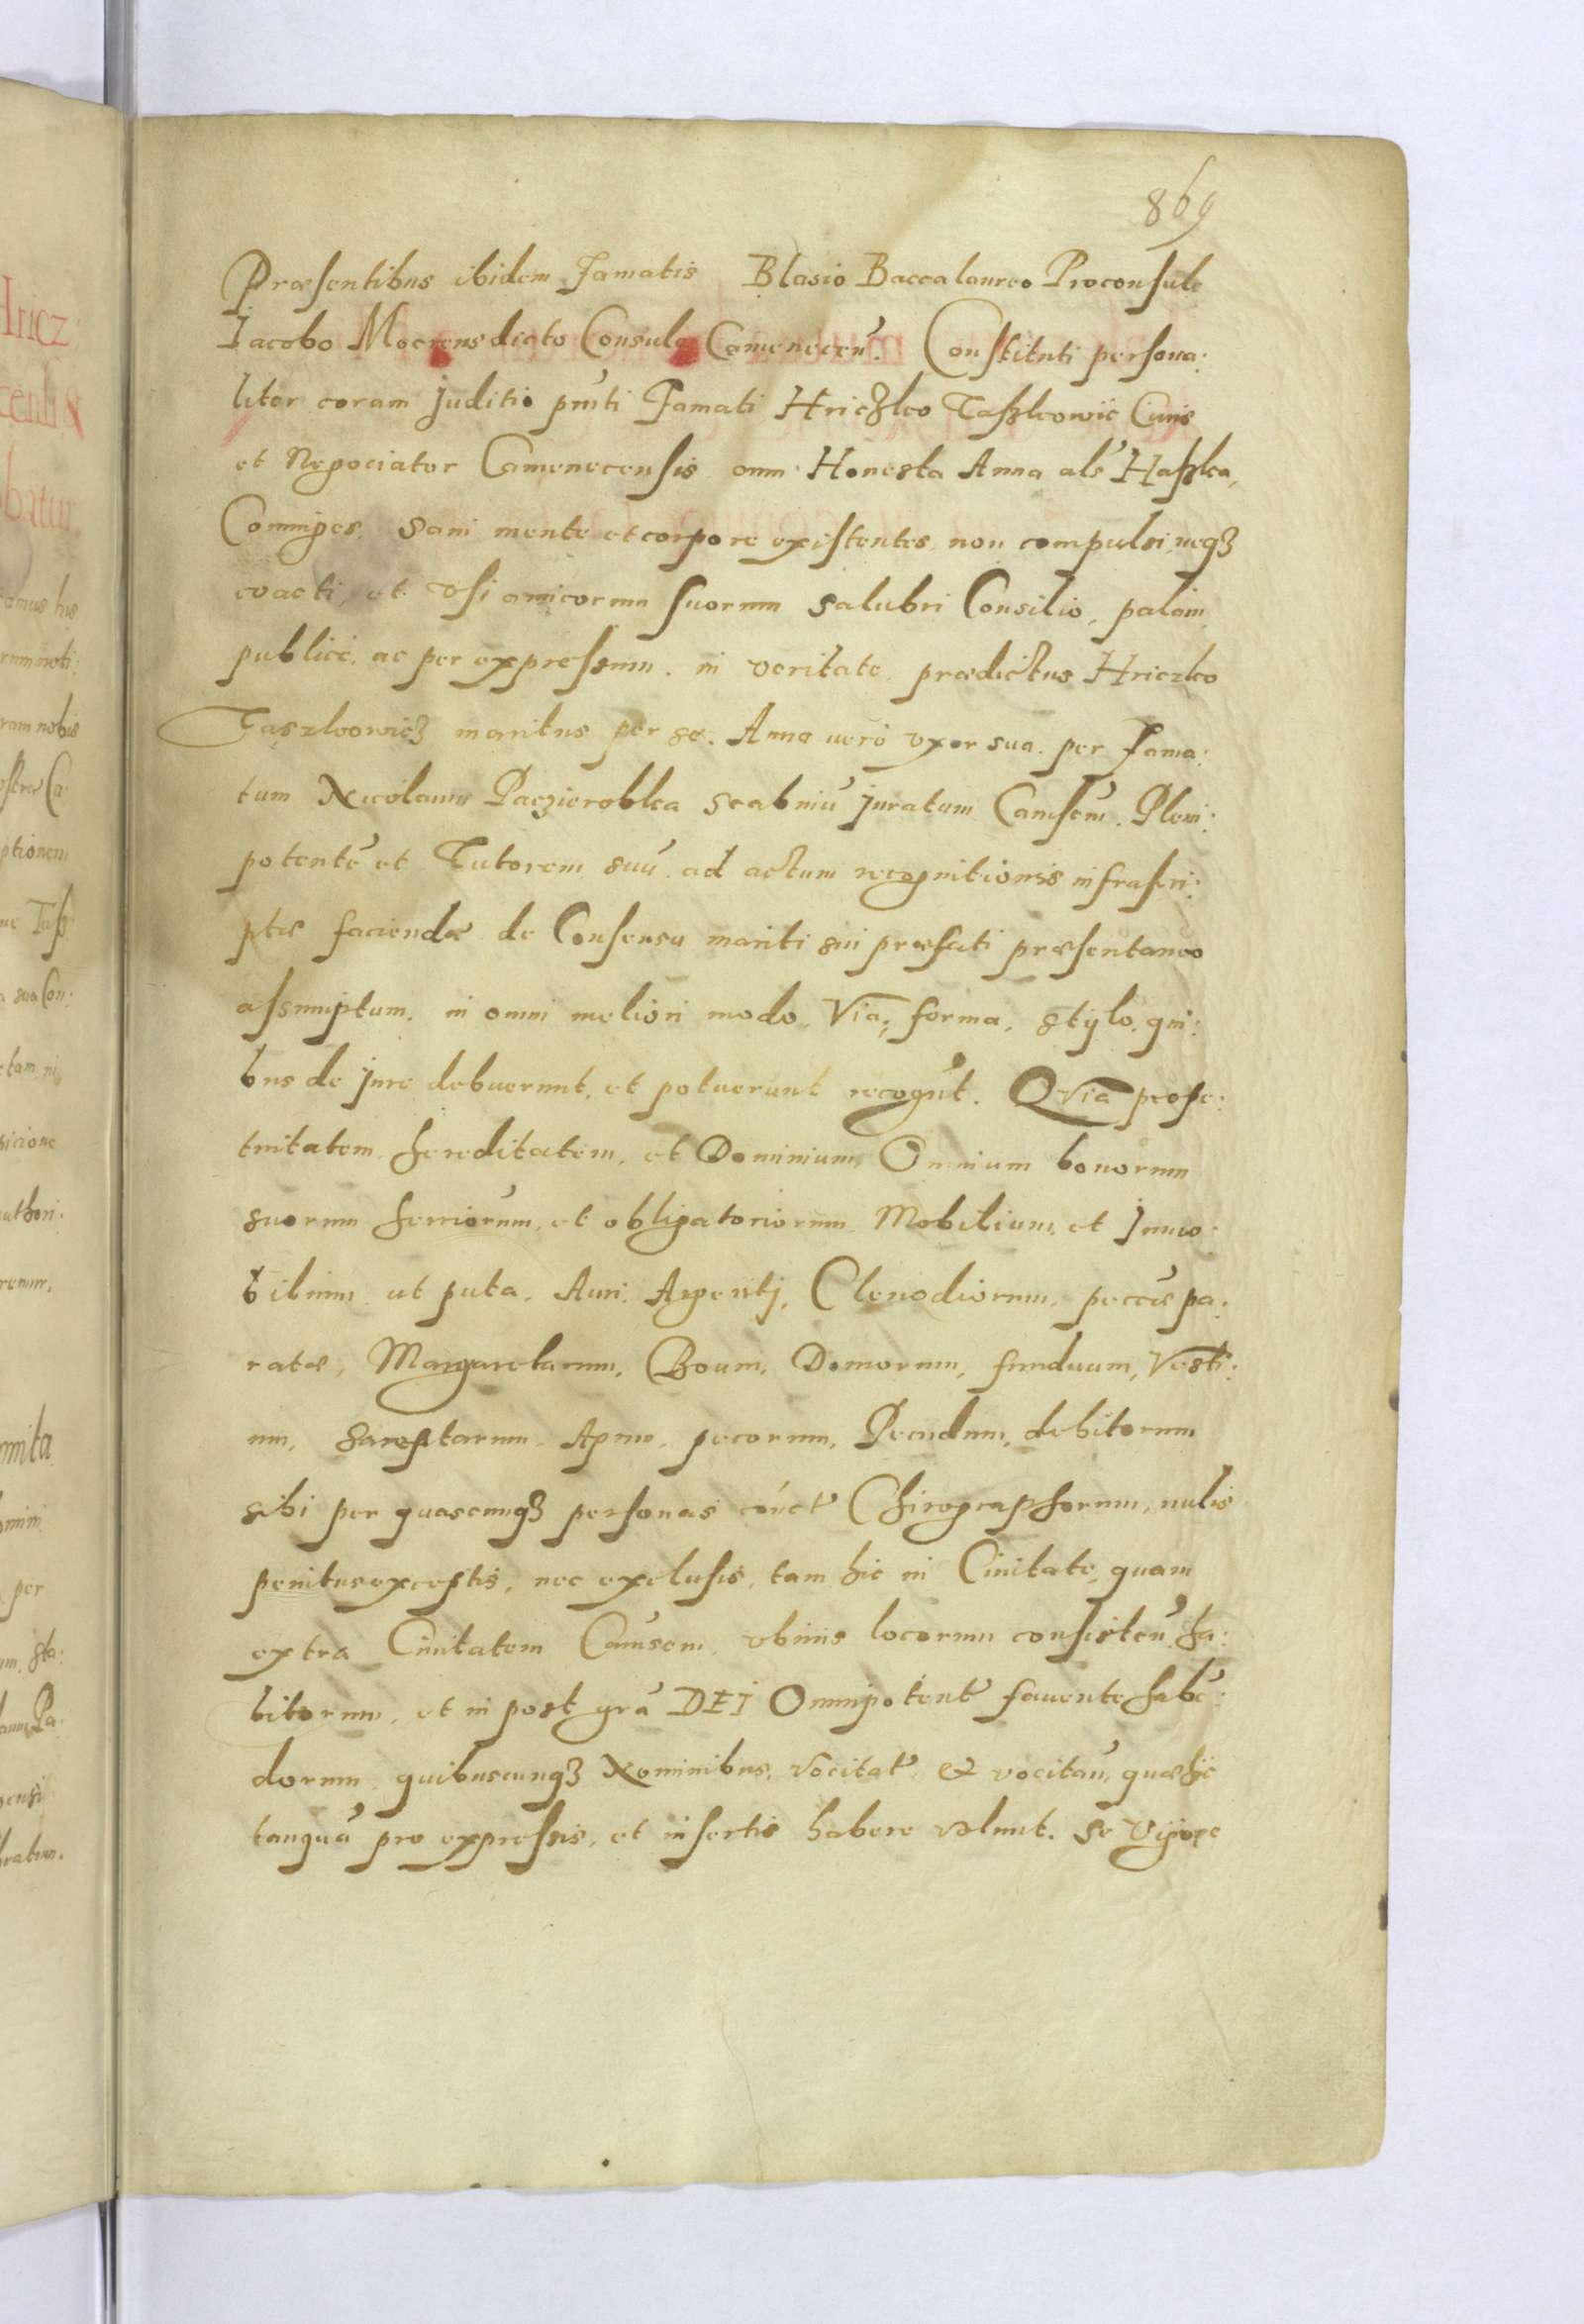 869
Præsentibus ibidem Famatis Blasio Baccalaureo Proconsule
Iacobo Mocrensdicto Consule Camenecen̄. Constituti persona:
liter coram Juditio pn̄ti Famati Hriczko Taszkowic Civis
et Negociator Camenecensis cum Honesta Anna als Haszka,
Coniuges. Sani mente et corpore existentes, non compulsi, neqȝ
coacti, et vsi amicorum suorum salubri Consilio, palam
publice, ac per expressum. in veritate prædictus Hriczko
Taszkowicz maritus per se. Anna uero vxor sua. per Fama:
tum Nicolaum Paczieroblka Scabinū Juratum Camsēm. Pleni:
potentē et Tutorem suū ad actum recognitionis infrascri:
ptæ faciendæ de Consensu mariti sui præfati præsentaneo
assumptum. in omni meliori modo, Via, forma, stylo, qui:
bus de Jure debuerunt, et potuerunt recogūt. QVia perpe:
tuitatem, hereditatem, et Dominium, Omnium bonorum
suorum herriorum, et obligatoriorum Mobilium, et Immo:
bilium ut puta, Auri, Argentj, Clenodiorum, peccæ pa:
ratæ, Margaretarum, Boum, Domorum, funduum, Vesti:
um, Sareptarum, Apum, pecorum, Pecudum, debitorum
sibi per quascunqȝ personas cōnct Chirographorum, nulis
penitus exceptis, nec exclusis, tam hic in Ciuitate, quam
extra Ciuitatem Camsem vbiuis locorum consisteñ. ha:
bitorum, et in post grā DEI Omnipotent fauente habē:
dorum quibuscunqȝ Nominibus, vocitat & vocitan̄, quæ hic
tanquā pro expressis, et insertis habere volunt. Se Vigore